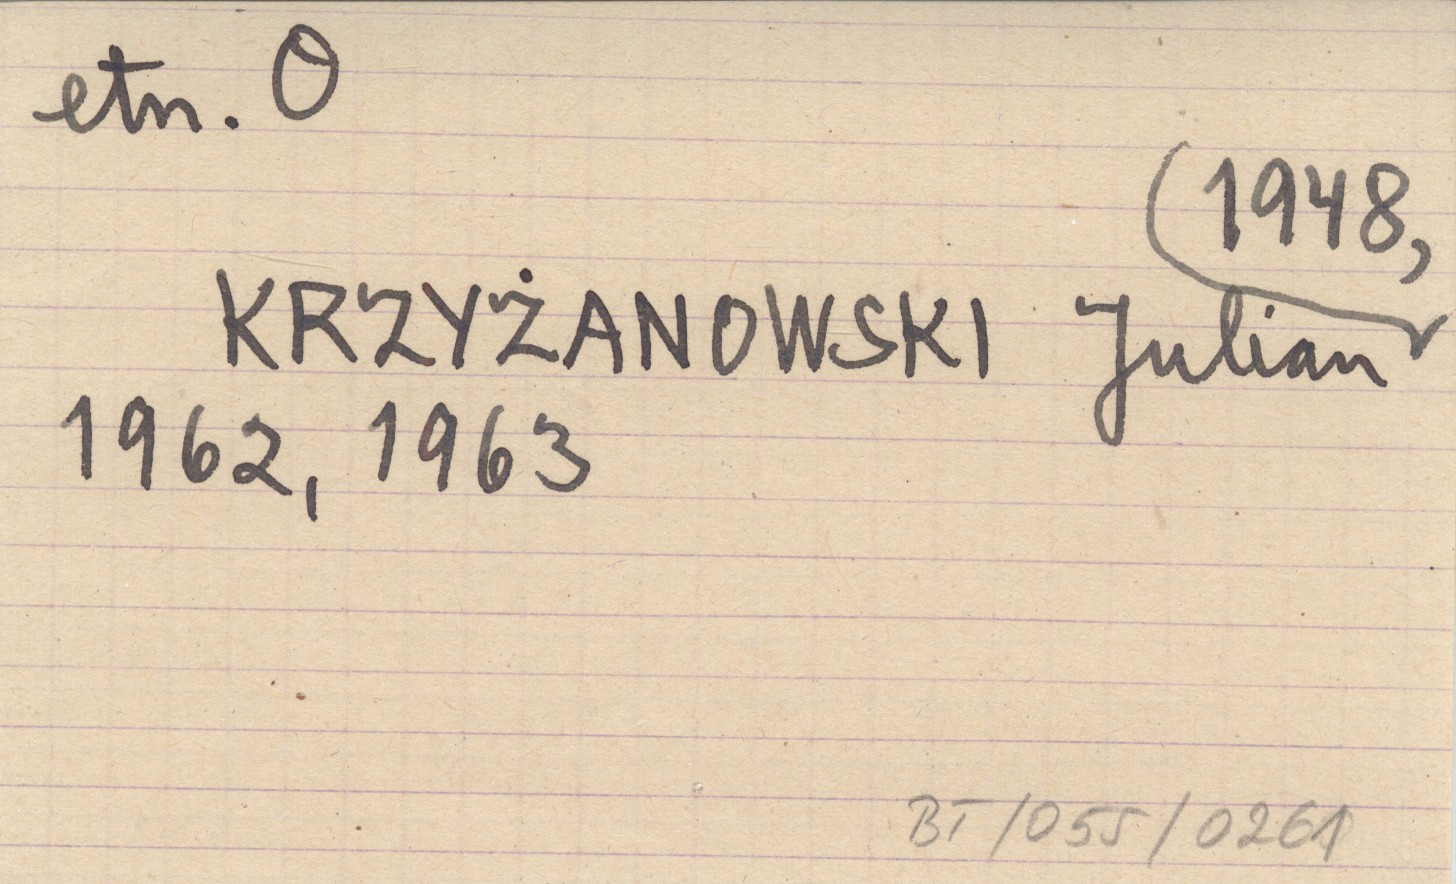 etn. O
(1948,
KRZYŻANOWSKI Julian
1962, 1963
BT/055/0261